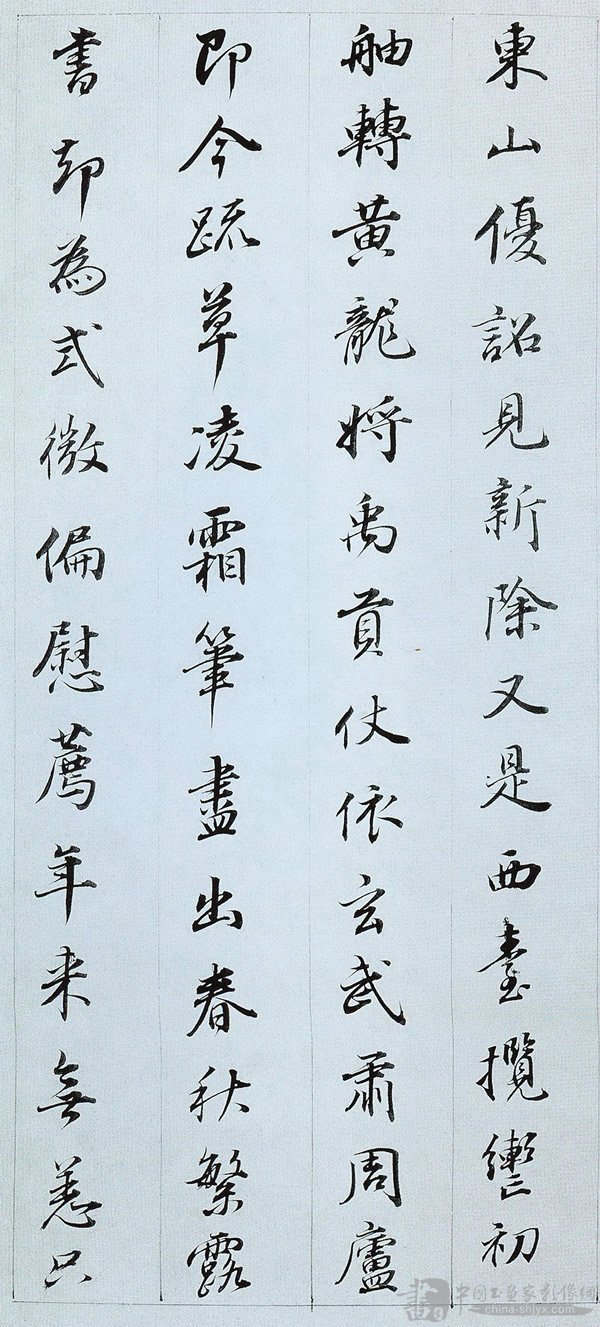 東山優詔見新除又是西臺攬轡初
舳轉黃龍將禹貢仗依玄武肅周廬
即今疏草凌霜筆盡出春秋繁露
書却為式微偏慰薦年来無恙只
中国书画家影像网
china-shjyx.com